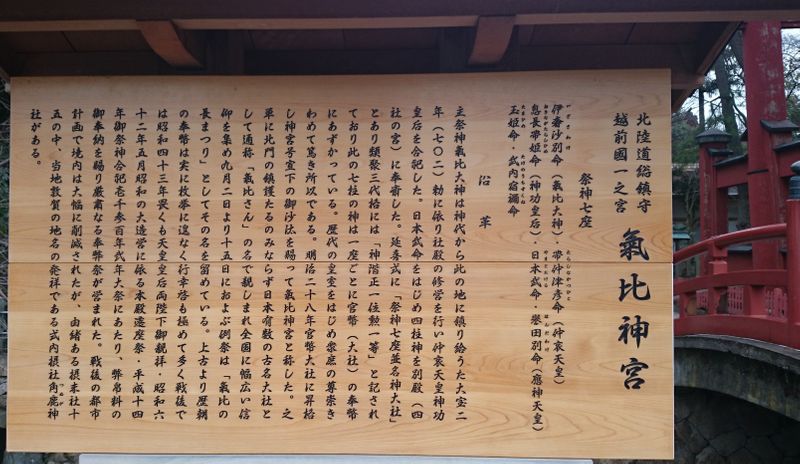 北陸道総鎮守
越前國一之宮
氣比神宮
祭神七座
伊奢沙別命(氣比大神)・帯仲津彦命(仲哀天皇)
息長帯姫命(神功皇后)・日本武命・誉田別命(應神天皇)
玉姫命・武内宿禰命
沿革
主祭神氣比大神は神代から此の地に鎮り給うた大宝二
年(七〇二)勅に依り社殿の修営を行い仲哀天皇神功
皇后を合祀した。日本武命をはじめ四柱神を別殿(四
社の宮)に奉斎した。延喜式に「祭神七座並名神大社」
とあり類聚三代格には「神階正一位勲一等」と記され
ており此の七柱の神は一座ごとに官幣(大社)の奉幣
にあずかっている。歴代の皇室をはじめ衆庶の尊崇き
わめて篤き所以である。明治二十八年官幣大社に昇格
し神宮号宣下の御沙汰を賜って氣比神宮と称した。之
單に北門の鎮護たるのみならず日本有数の古名大社と
して通称「氣比さん」の名で親しまれ全国に幅広い信
仰を集め九月二日より十五日におよぶ例祭は「氣比の
長まつり」としてその名を留めている。上古より歴朝
の奉幣は実に枚挙に遑なく行幸啓も極めて多く戦後で
は昭和四十三年畏くも天皇皇后両陛下御親拝・昭和六
十二年五月昭和の大造営に依る本殿遷座祭・平成十四
年御祭神合祀壱千参百年式年大祭にあたり、幣帛料の
御奉納を賜り厳粛なる奉幣祭が営まれた。戦後の都市
計画で境内は大幅に削減されたが、由緒ある摂末社十
五の中、当地敦賀の地名の発祥である式内摂社角鹿神
社がある。